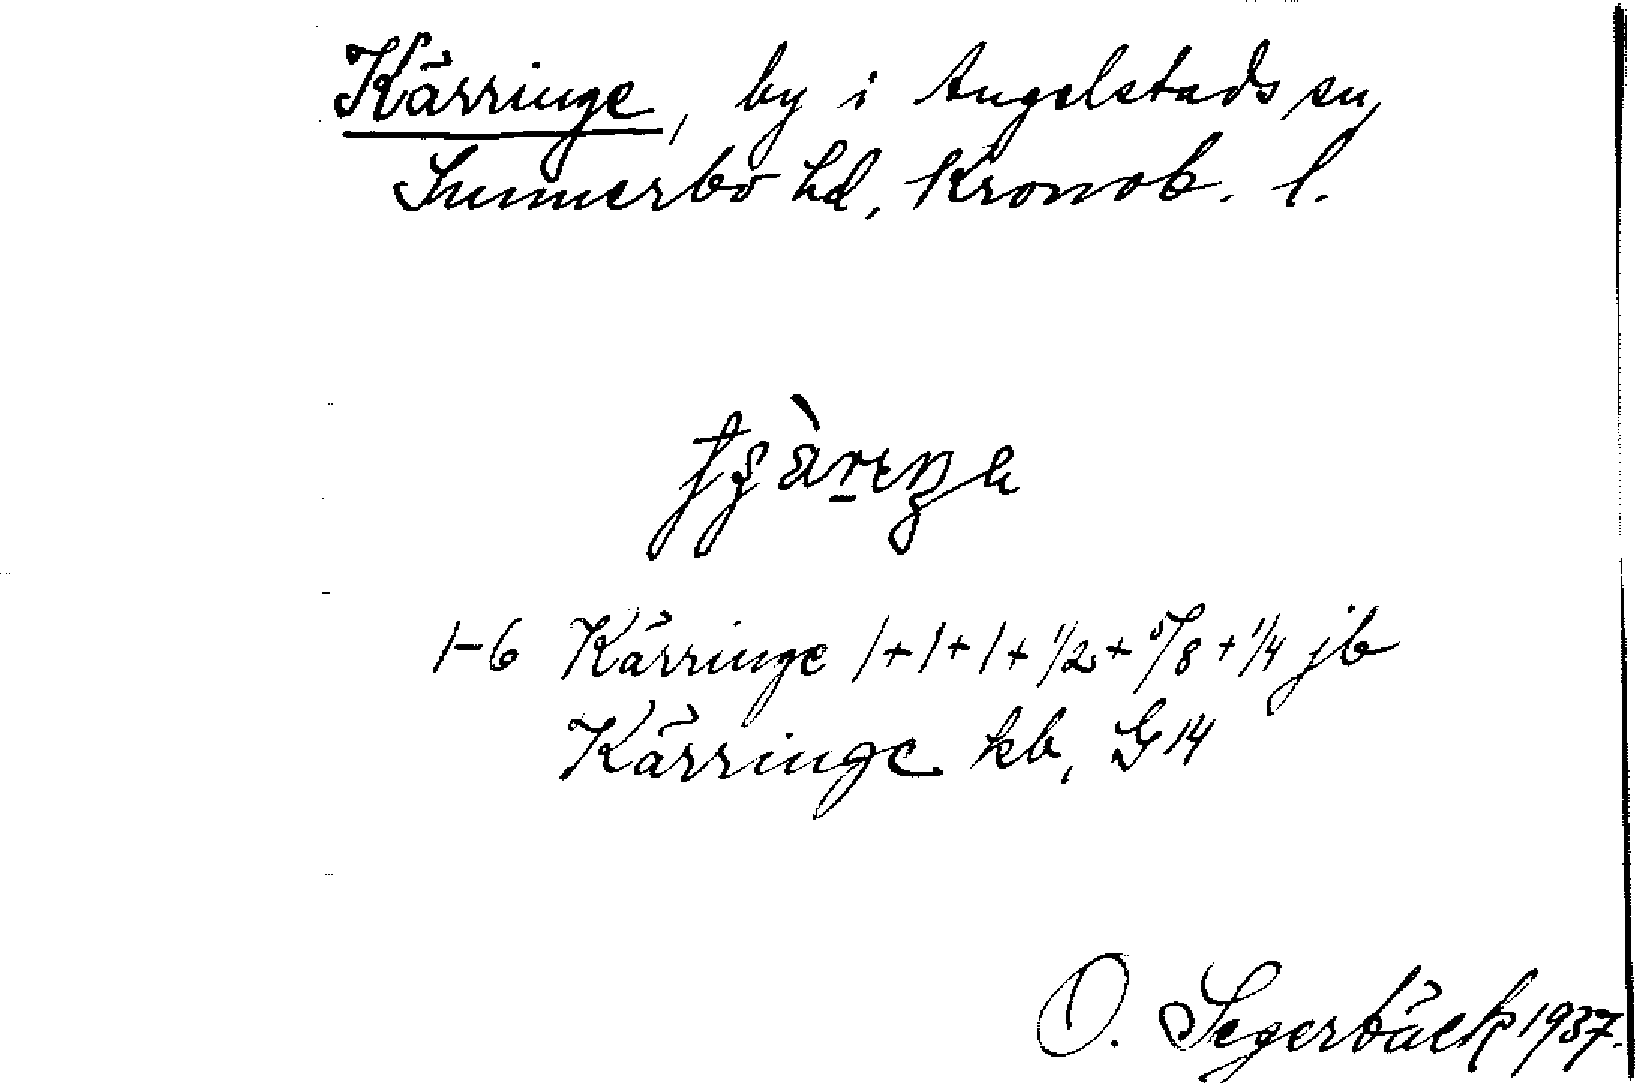 Kärringe, by i Angelstads sn,
Sunnerbo hd, Kronob. l.
1-6 Kärringe 1+1+1+1/2+5/8+1/4 jb
Kärringe kb, G14
O. Segerbäck 1937.